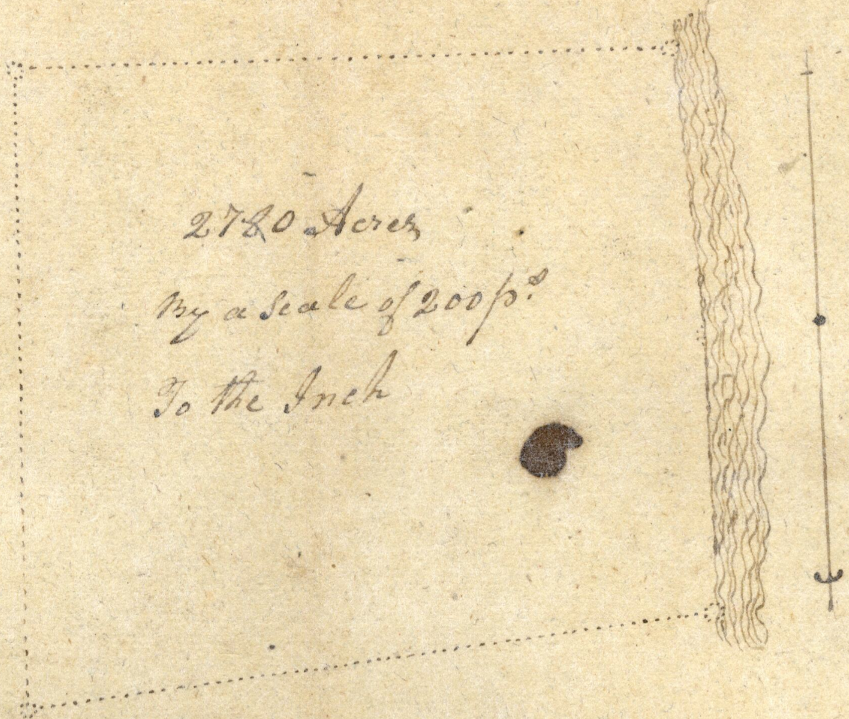 2780 Acres
By a Scale of 200 ps
To the Inch